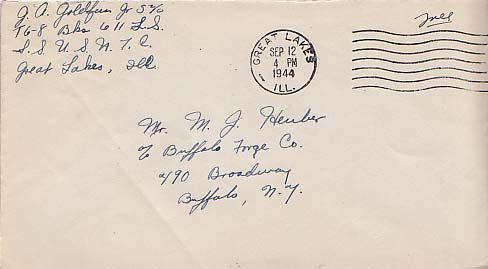 J. A. Goldfus Jr S 2/c
T6-8 Bks 611 L.S.
S. S. U. S. N. T. C.
Great Lakes, Ill.
Free
GREAT LAKES
SEP 12
4 PM
1944
ILL.
1
Mr. M. J. Heuber
% Buffalo Forge Co.
490 Broadway
Buffalo, N.Y.